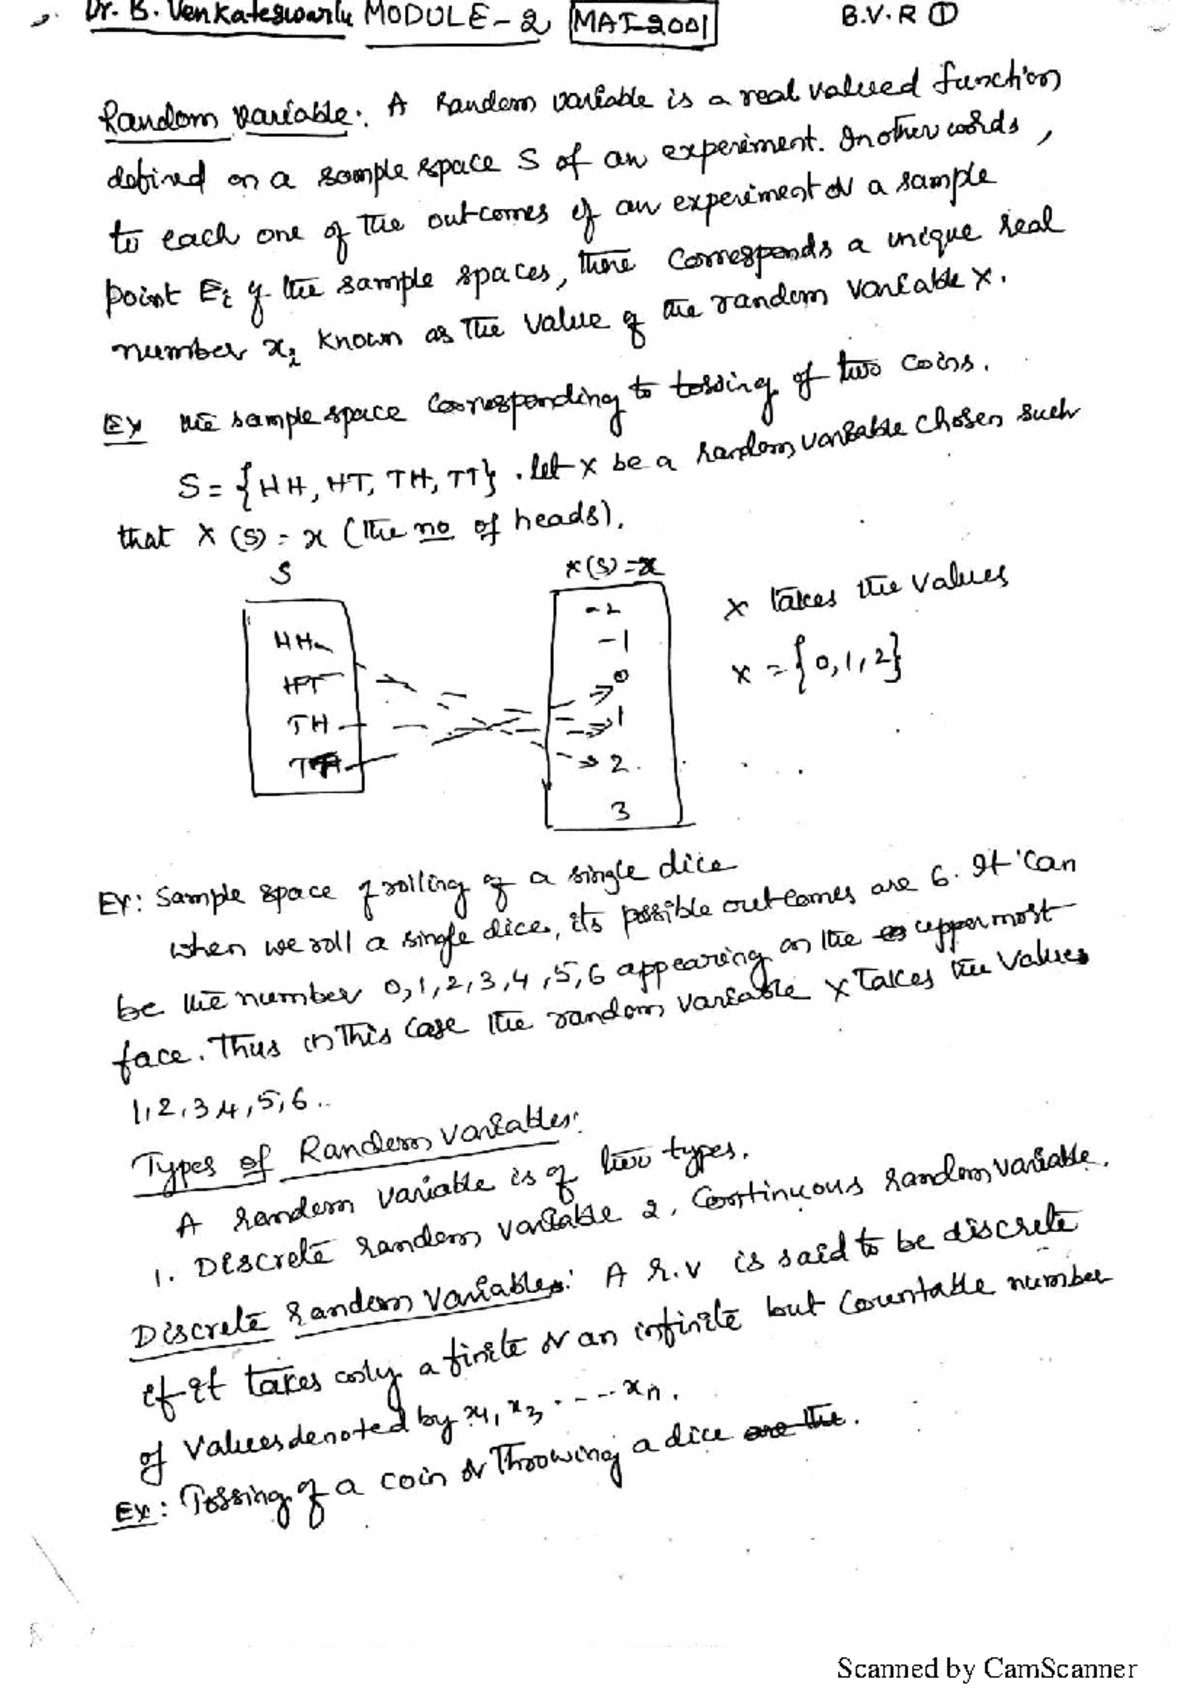 Dr. B. Venkateswarlu MODULE-2 MAT-2001 B.V.R 1
Random variable: A Random variable is a real valued function
defined on a sample space S of an experiment. In other words,
to each one of the outcomes of an experiment or a sample
point Ei of the sample spaces, there corresponds a unique real
number xi known as the value of the random variable X.
Ex The sample space corresponding to tossing of two coins.
S = {HH, HT, TH, TT}. let X be a random variable chosen such
that X(S) = x (the no of heads).
S X(S)=x
-2
HH -1
HT 0
TH 1
TT 2
3
X takes the values
X = {0,1,2}
Ex: Sample space of rolling of a single dice
When we roll a single dice, its possible outcomes are 6. It can
be the number 0,1,2,3,4,5,6 appearing on the uppermost
face. Thus in this case the random variable X takes the values
1,2,3,4,5,6..
Types of Random variables:
A random variable is of two types.
1. Discrete random variable 2. Continuous random variable.
Discrete random variables: A r.v is said to be discrete
if it takes only a finite or an infinite but countable number
of values denoted by x1, x2, ---- xn.
Ex: Tossing of a coin or Throwing a dice are the.
Scanned by CamScanner